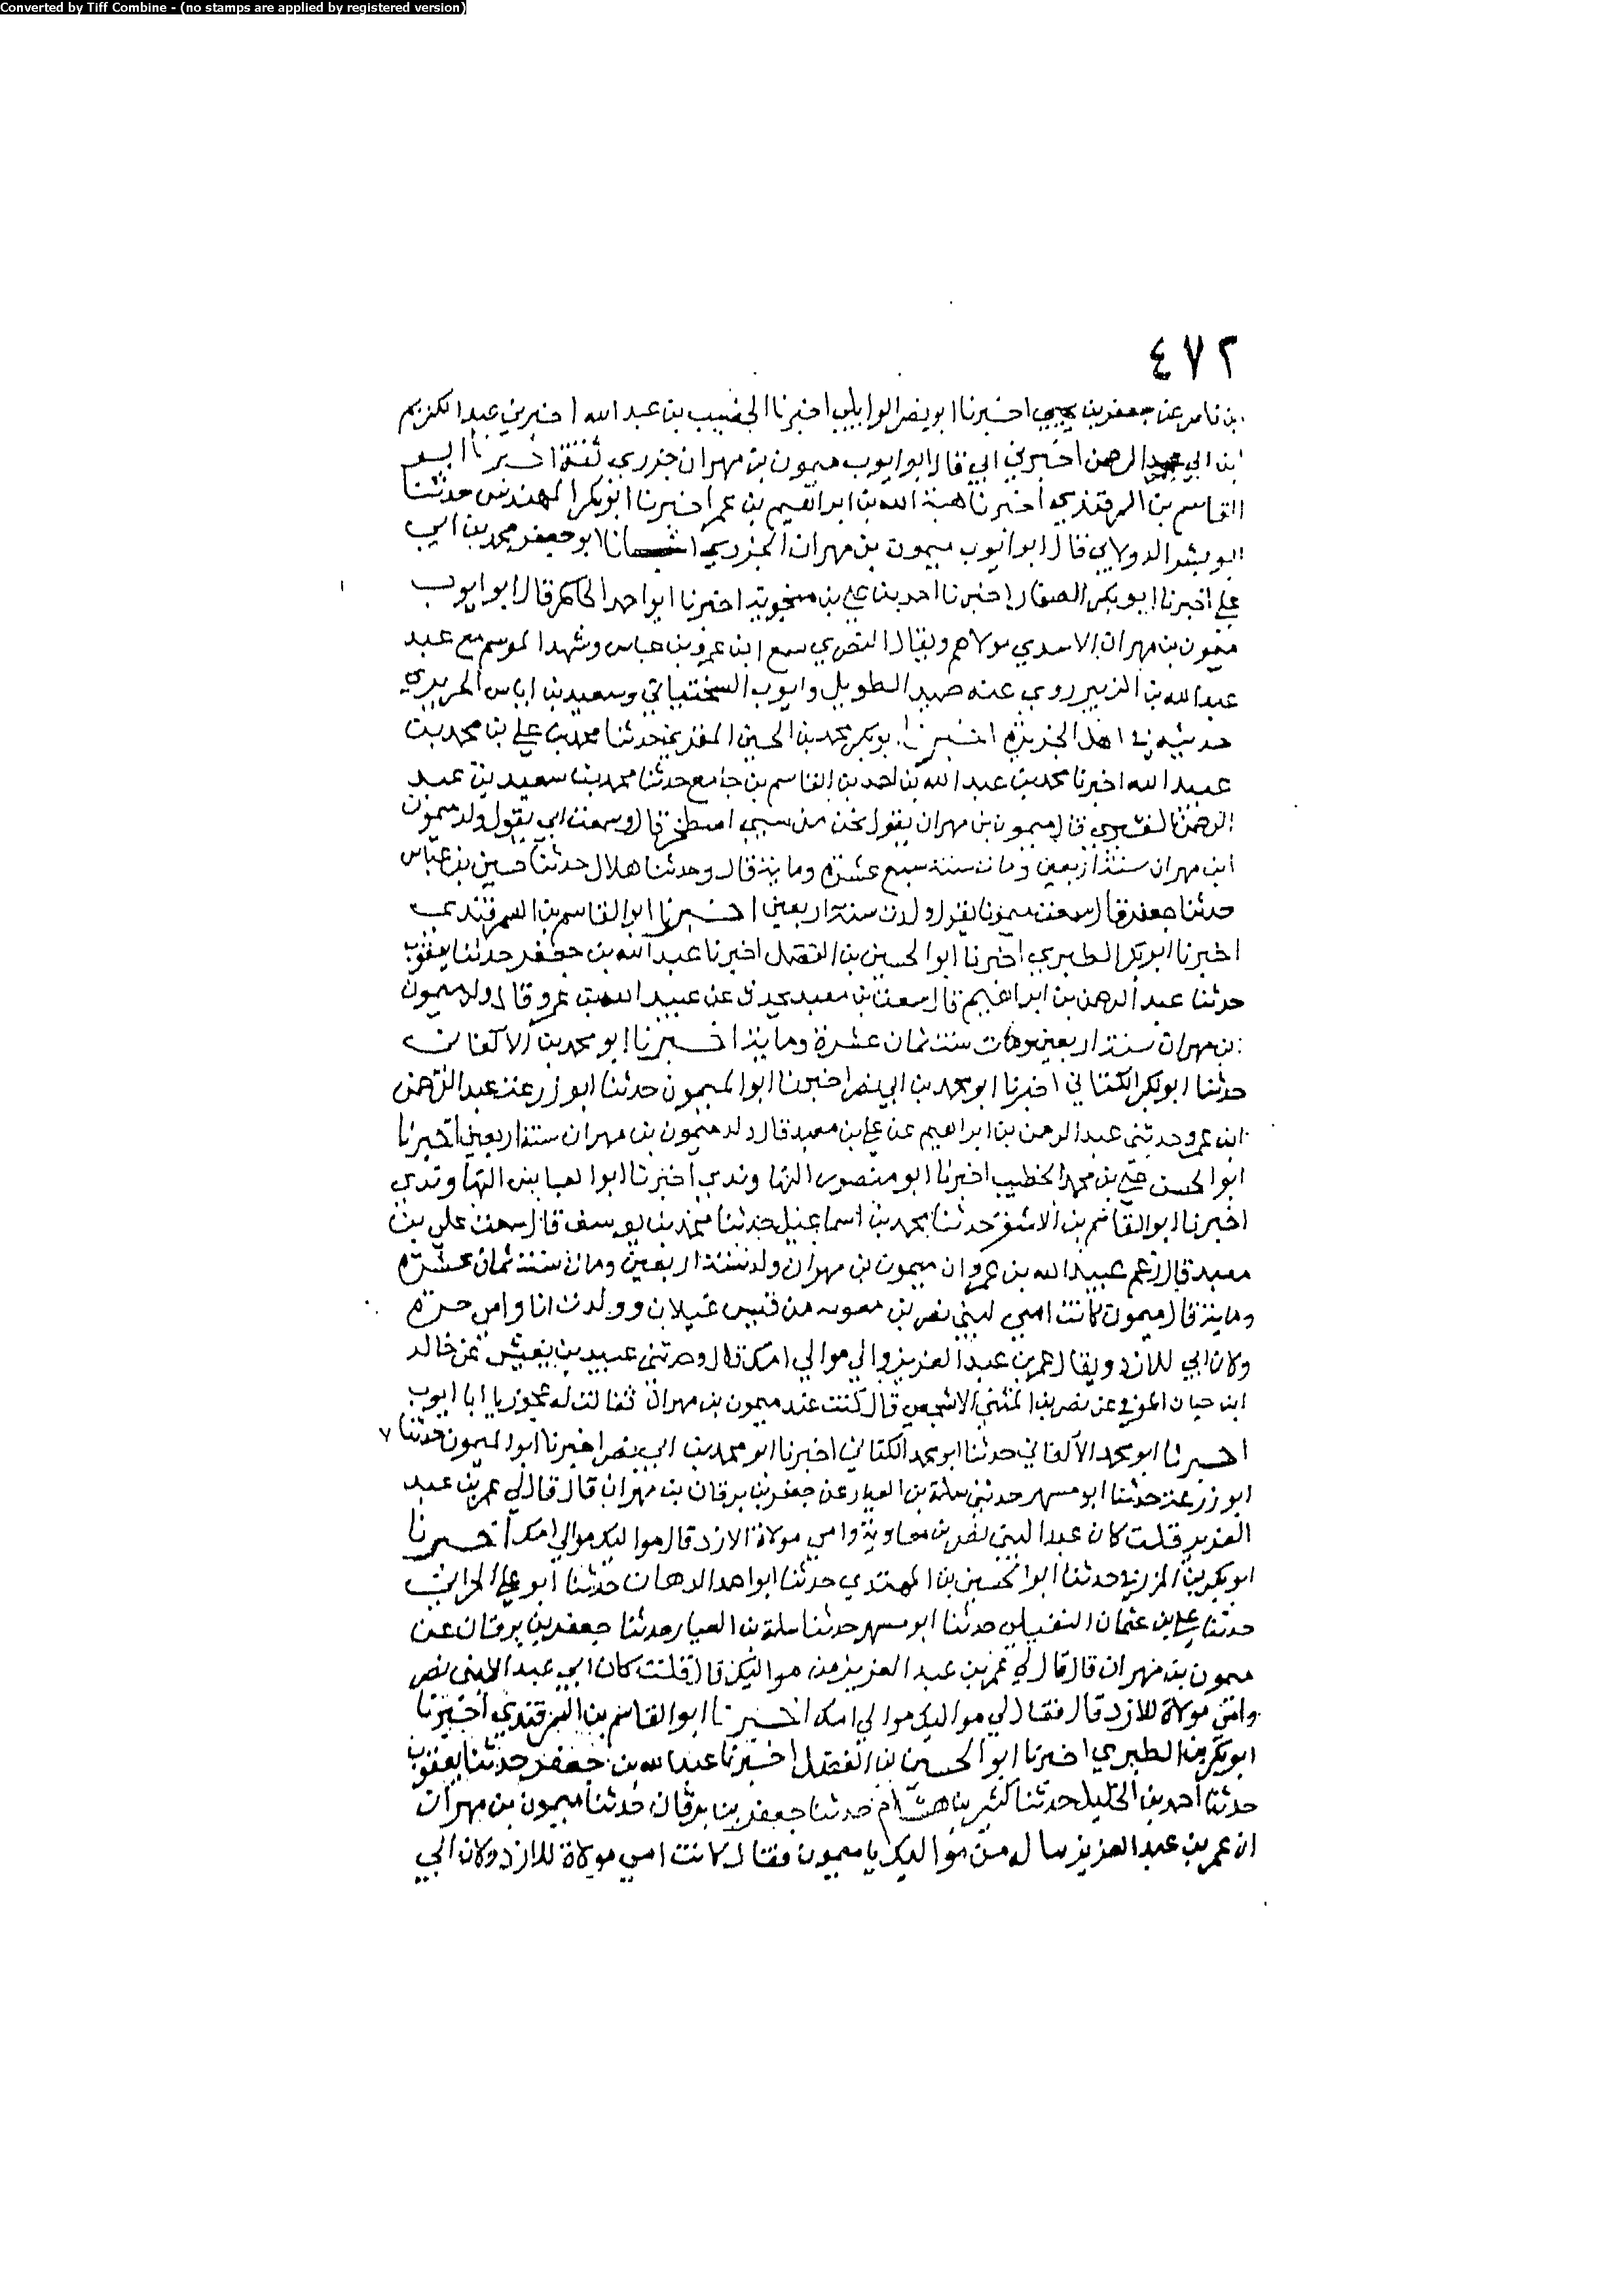 Converted by Tiff Combine - (no stamps are applied by registered version)
٤٧٢
بن ناصر عن جعفر بن يحيى اخبرنا ابو نصر الوايلي اخبرنا الخصيب بن عبد الله اخبرني عبد الكريم
ابن ابي عبد الرحمن اخبرني ابي قال ابو ايوب ميمون بن مهران جزري ثقة اخبرنا ابو
القاسم بن السمرقندي اخبرنا هبة الله بن ابراهيم بن عمر اخبرنا ابو بكر المهندس حدثنا
ابو بشر الدولابي قال ابو ايوب ميمون بن مهران الجزري انبانا ابو جعفر محمد بن ابي
علي اخبرنا ابو بكر الصفار اخبرنا احمد بن علي بن منجويه اخبرنا ابو احمد الحاكم قال ابو ايوب
ميمون بن مهران الاسدي مولاهم ويقال النصري سمع ابن عمر وبن عباس وشهد الموسم مع عبد
عبد الله بن الزبير روى عنه حميد الطويل وايوب السختياني وسعيد بن اياس الجريري
حديثه في اهل الجزيرة اخبرنا ابو بكر محمد بن الحسين المقري حدثنا محمد بن علي بن محمد بن
عبيد الله اخبرنا محمد بن عبد الله بن احمد بن القاسم بن جامع حدثنا محمد بن سعيد بن عبد
الرحمن القشيري قال ميمون بن مهران يقول نحن من سبي اصطخر قال وسمعت ابي يقول ولد ميمون
ابن مهران سنة اربعين ومات سنة سبع عشرة وماية قال وحدثنا هلال حدثنا حسين بن عياش
حدثنا جعفر قال سمعت ميمونا يقول ولدت سنة اربعين اخبرنا ابو القاسم بن السمرقندي
اخبرنا ابو بكر الطبري اخبرنا ابو الحسين بن الفضل اخبرنا عبد الله بن جعفر حدثنا يعقوب
حدثنا عبد الرحمن بن ابراهيم قال سمعت بن معبد يحدث عن عبيد الله بن عمرو قال ولد ميمون
بن مهران سنة اربعين ومات سنة ثمان عشرة وماية اخبرنا ابو محمد بن الاكفاني
حدثنا ابو بكر الكتاني اخبرنا ابو محمد بن ابي نصر اخبرنا ابو الميمون حدثنا ابو زرعة عبد الرحمن
ابن عمرو حدثني عبد الرحمن بن ابراهيم عن علي بن معبد قال ولد ميمون بن مهران سنة اربعين اخبرنا
ابو الحسن علي بن محمد الخطيب اخبرنا ابو منصور النهاوندي اخبرنا ابو العباس النهاوندي
اخبرنا ابو القاسم بن الاشقر حدثنا محمد بن اسماعيل حدثنا محمد بن يوسف قال سمعت علي بن
معبد قال زعم عبيد الله بن عمرو ان ميمون بن مهران ولد سنة اربعين ومات سنة ثمان عشرة
وماية قال ميمون كانت امي لبني نصر بن معويه من قيس غيلان وولدت انا وامي حرة
وكان ابي للازد ويقال عمر بن عبد العزيز والي موالي امك قال وحدثني عبيد بن يعيش عن خالد
ابن حيان المزني عن نصر بن المثنى الاشجعي قال كنت عند ميمون بن مهران ثقالت له عجوز يا ابا ايوب
اخبرنا ابو محمد الاكفاني حدثنا ابو محمد الكتاني اخبرنا ابو محمد بن ابي نصر اخبرنا ابو الميمون حدثنا ٧
ابو زرعة حدثنا ابو مسهر حدثني سلمة بن العيار عن جعفر بن برقان بن مهران قال قال لي عمر بن عبد
العزيز قلت كان عبدا لبني نصر بن معاوية وامي مولاة الازد قال مواليك موالي امك اخبرنا
ابو بكر بن المزرفي حدثنا ابو الحسين بن المهتدي حدثنا ابو احمد الدهان حدثنا ابو علي الحراني
حدثنا علي بن عثمان النفيلي حدثنا ابو مسهر حدثنا سلمة بن العيار حدثنا جعفر بن برقان عن
ميمون بن مهران قال قال لي عمر بن عبد العزيز من مواليك قال قلت كان ابي عبدا لابني نصر
وامي مولاة للازد قال فقال لي مواليك موالي امك اخبرنا ابو القاسم بن السمرقندي اخبرنا
ابو بكر بن الطبري اخبرنا ابو الحسين بن الفضل اخبرنا عبد الله بن جعفر حدثنا يعقوب
حدثنا احمد بن الخليل حدثنا كثير بن هشام حدثنا جعفر بن برقان حدثنا ميمون بن مهران
ان عمر بن عبد العزيز ساله من مواليك يا ميمون فقال كانت امي مولاة للازد وكان ابي